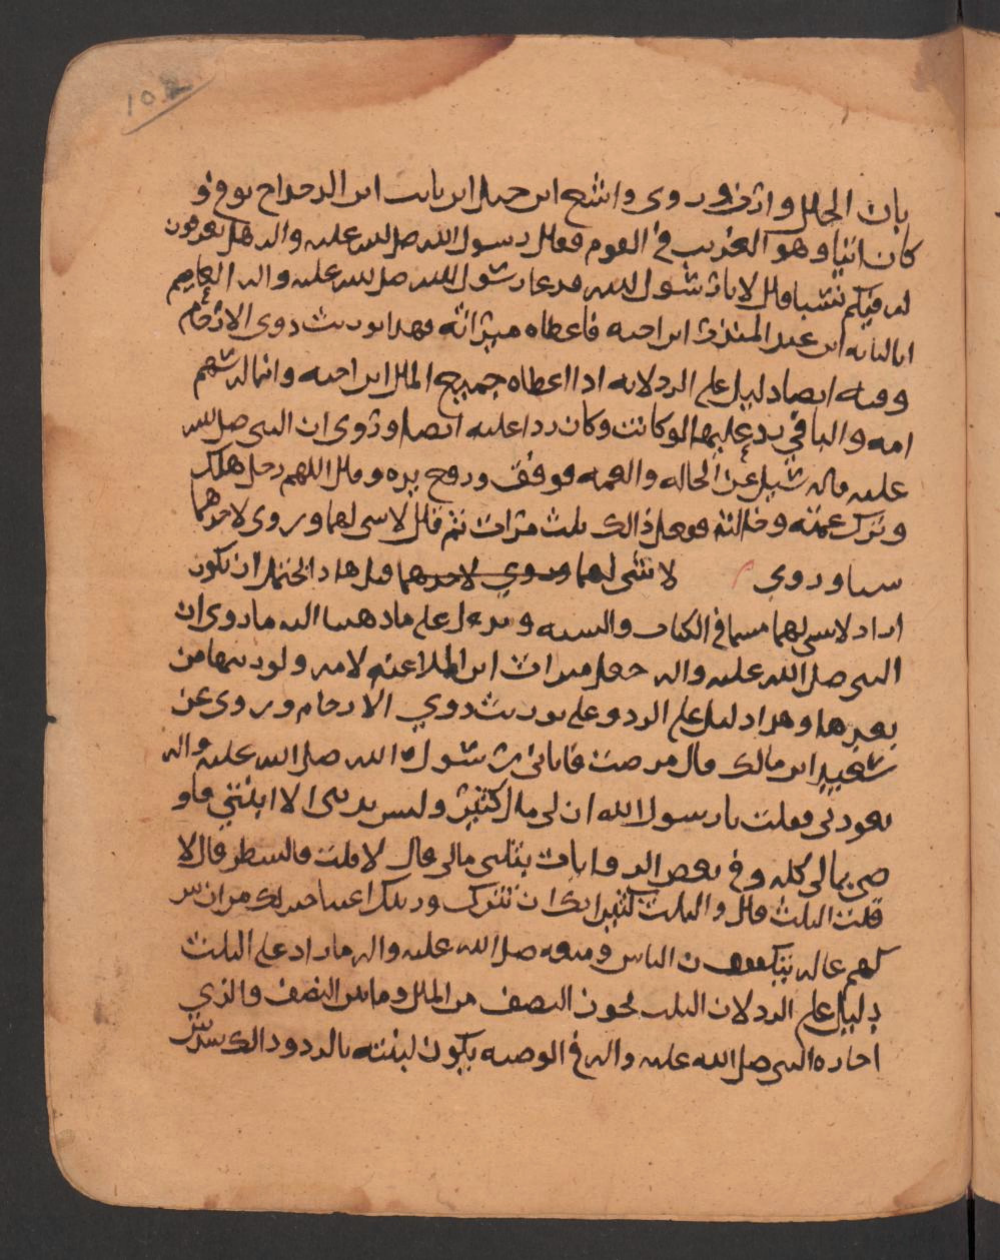 102
بان الحال وارث وروى واسع ابن حبان ان ثابت ابن الدحداح توفي و
كان اتيا وهو الغريب في القوم فقال رسول الله صلى الله عليه واله هل تعرفون
له فيكم نسبا قال لا يارسول الله فدعا رسول الله صلى الله عليه واله
ابا لبابه ابن عبد المنذر ابن اخته فاعطاه ميراثه فهذا توريث ذوي الارحام
وفيه ايضا دليل على الرد لانه اذا اعطاه جميع المال ابن اخته وانما له سهم
امه والباقي يرد عليها لو كانت وكان ردا عليه ايضا وروى ان النبي صلى الله
عليه واله سئل عن الخاله والعمه فوقف ورفع يده وقال اللهم رجل هلك
وترك عمته وخالته فقعل ذالك ثلث مرات ثم قال لا شي لهما وروى لا
وروي لا شي لهما وروي لاحدهما قيل هذا يحتمل ان يكون
اراد لا شي لهما مسما في الكتاب والسنه ويدل على ما ذهبنا اليه ما روى ان
النبي صلى الله عليه واله جعل ميراث ابن الملاعنه لامه ولورثتها من
بعدها وهذا دليل على الرد وعلى توريث ذوي الارحام وروى عن
سعيد ابن مالك قال مرضت فاتاني رسول الله صلى الله عليه واله
يعودني فقلت يارسول الله ان لي مال كثير وليس يرثني الا ابنتي فاو
صي بمالي كله وفي بعض الروايات بثلثي مالي قال لا قلت فالشطر قال لا
قلت الثلث قال والثلث كثير انك ان تترك ورثتك اغنيا خير لك من ان تتر
كهم عاله يتكففون الناس ومنعه صلى الله عليه واله ما زاد على الثلث
دليل على الرد لان الثلث نحون النصف من المال وما بين النصف والذي
اجازه النبي صلى الله عليه واله في الوصيه يكون لبنته بالرد وذالك